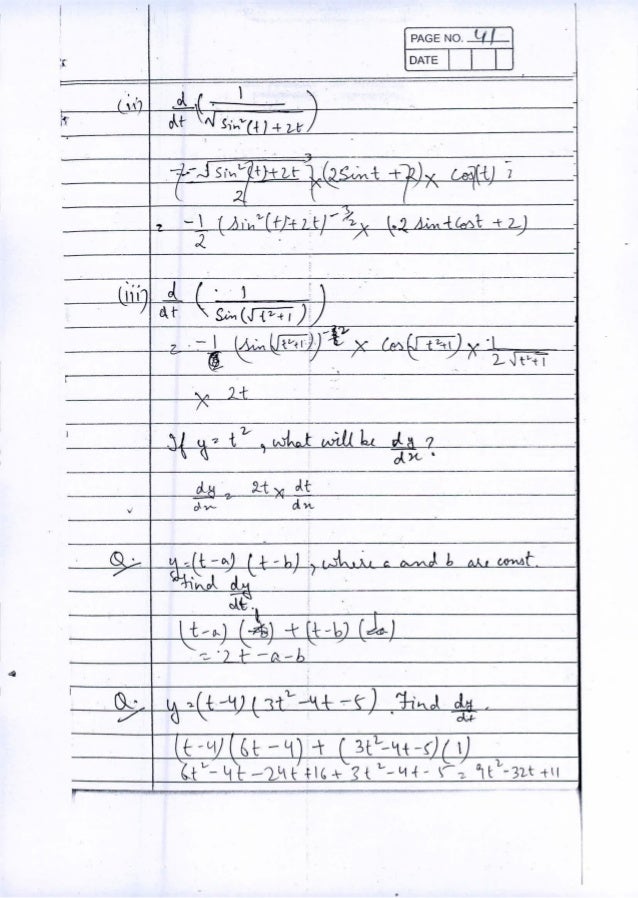 PAGE NO. 41
DATE
(ii) d/dt (1/√(sin²(t)+2t))
= -1/2 (sin²(t)+2t)^(-3/2) × (2 sintcost + 2)
(iii) d/dt (1/Sin(√(t²+1)))
= -1 (sin(√(t²+1)))^(-2) × Cos(√(t²+1)) × 1/(2√(t²+1))
× 2t
If y = t², what will be dy/dx?
dy/dx = 2t × dt/dx
Q: y=(t-a)(t-b), where a and b are const.
find dy/dt.
(t-a)(1) + (t-b)(1)
= 2t-a-b
Q: y=(t-4)(3t²-4t-5). Find dy/dt.
(t-4)(6t-4) + (3t²-4t-5)(1)
6t²-4t-24t+16+3t²-4t-5 = 9t²-32t+11